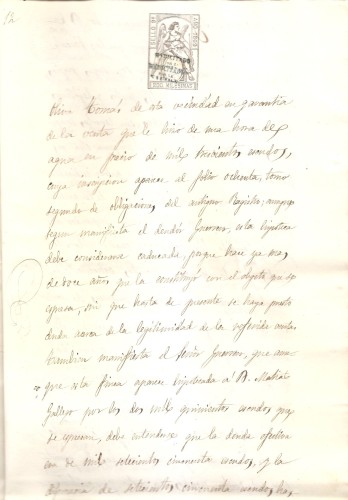 12
Oliva Tomás de esta vecindad en garantía
de la venta que le hizo de una hora de
agua en precio de mil trescientos escudos,
cuya inscripcion aparece al folio ochenta, tomo
segundo de obligaciones, del antiguo Registro: aunque
segun manifiesta el deudor Guerrero, esta hipoteca
debe considerarse caducada, porque hace ya mas
de doce años que la constituyó con el objeto que se
espresa, sin que hasta de presente se haya puesto
duda acerca de la legitimidad de la referida venta:
tambien manifiesta el Señor Guerrero, que aun
que esta finca aparece hipotecada á D. Matias
Gallego por los dos mil quinientos escudos que
se espresan, debe entenderse que la deuda efectiva
es de mil setecientos cincuenta escudos, y la
de setecientos cincuenta escudos